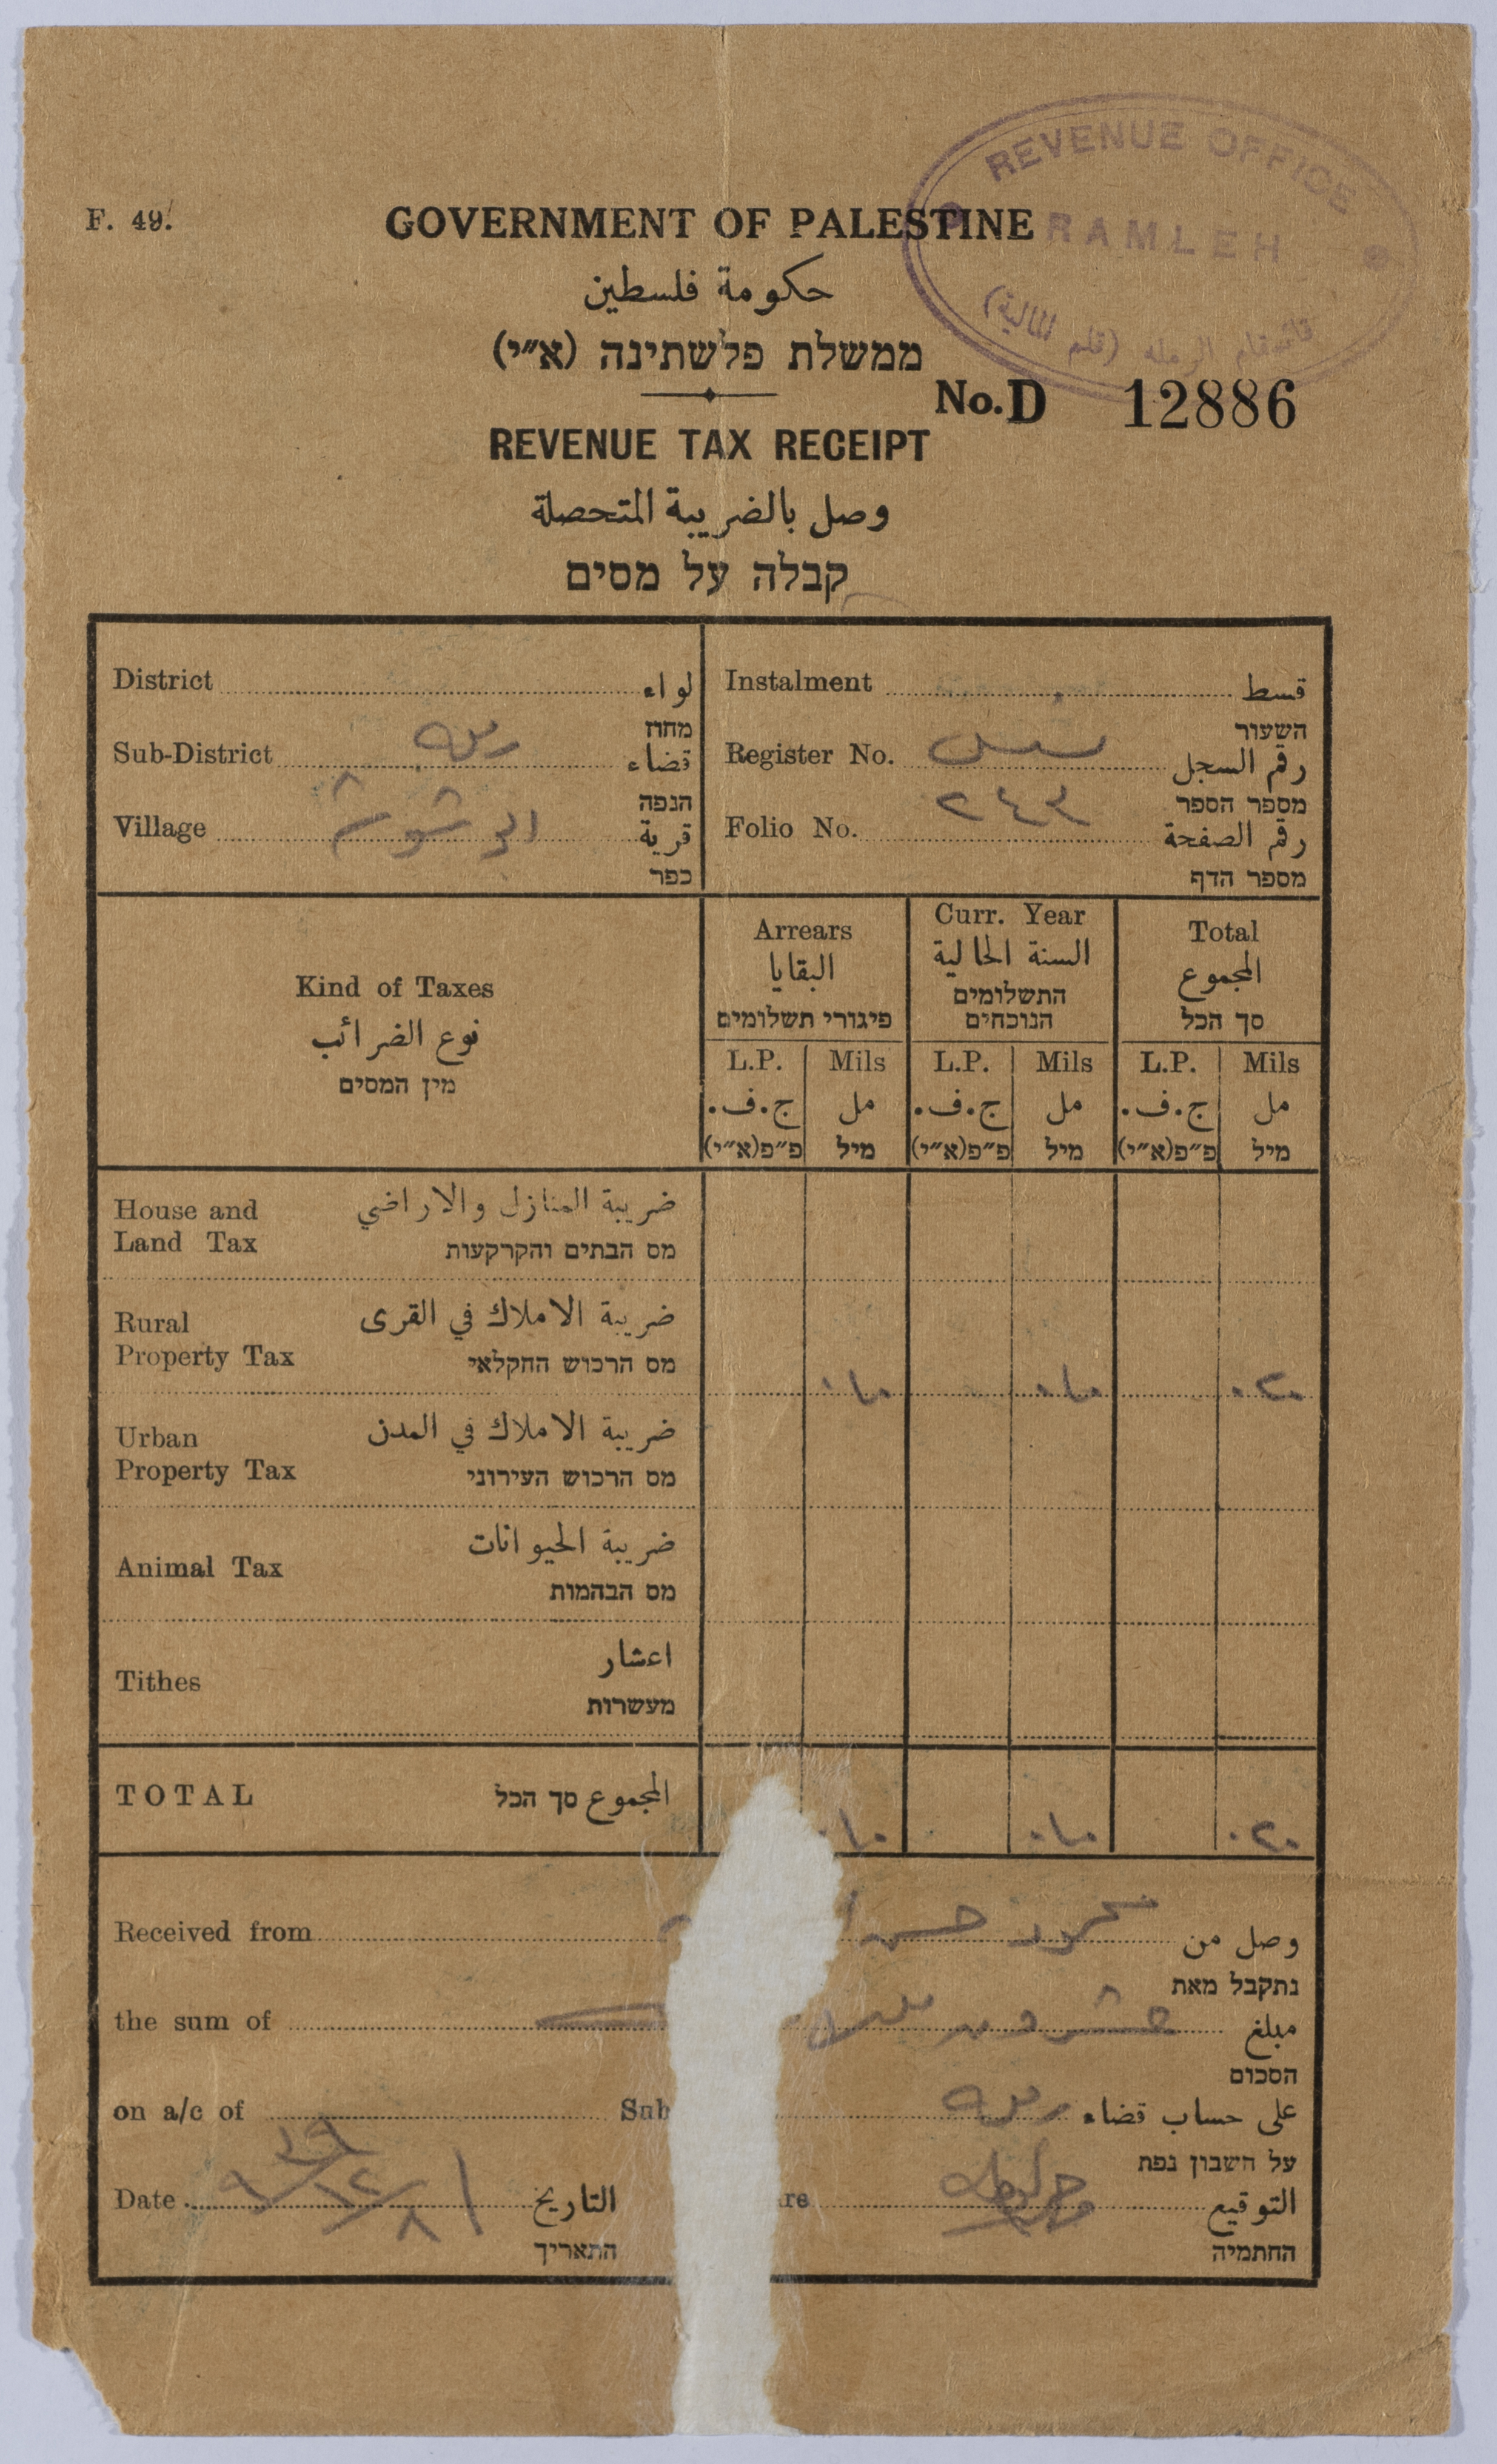 REVENUE OFFICE
RAMLEH
قائمقام الرملة (قلم المالية)
F. 49.
GOVERNMENT OF PALESTINE
حكومة فلسطين
ממשלת פלשתינה (א״י)
No. D 12886
REVENUE TAX RECEIPT
وصل بالضريبة المتحصلة
קבלה על מסים
District لواء
מחוז
Sub-District رمله قضاء
הנפה
Village قرية
כפר
Instalment قسط
השעור
Register No. رقم السجل
מספר הספר
Folio No. ٢٤٣ رقم الصفحة
מספר הדף
Kind of Taxes
نوع الضرائب
מין המסים
Arrears
البقايا
פיגורי תשלומים
Curr. Year
السنة الحالية
התשלומים
הנוכחים
Total
المجموع
סך הכל
L.P. Mils L.P. Mils L.P. Mils
ج.ف. مل ج.ف. مل ج.ف. مل
פ״פ(א״י) מיל פ״פ(א״י) מיל פ״פ(א״י) מיל
House and ضريبة المنازل والاراضي
Land Tax מס הבתים והקרקעות
Rural ضريبة الاملاك في القرى
Property Tax מס הרכוש החקלאי
٠١٠ ٠١٠ ٠٢٠
Urban ضريبة الاملاك في المدن
Property Tax מס הרכוש העירוני
Animal Tax ضريبة الحيوانات
מס הבהמות
Tithes اعشار
מעשרות
TOTAL المجموع סך הכל
٠١٠ ٠١٠ ٠٢٠
Received from محمود حسن وصل من
נתקבל מאת
the sum of عشرون مل مبلغ
הסכום
on a/c of Sub رمله على حساب قضاء
על חשבון נפת
Date التاريخ re التوقيع
התאריך החתמיה